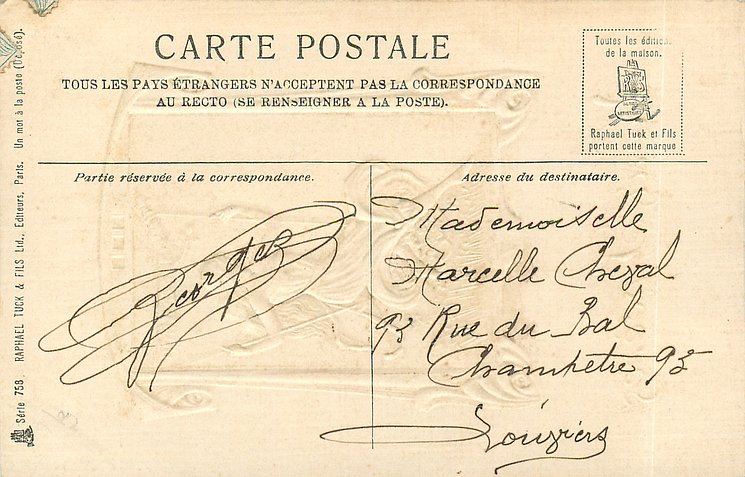 CARTE POSTALE
TOUS LES PAYS ÉTRANGERS N'ACCEPTENT PAS LA CORRESPONDANCE
AU RECTO (SE RENSEIGNER A LA POSTE).
Toutes les éditions
de la maison.
Raphael Tuck et Fils
portent cette marque
Partie réservée à la correspondance.
Georges
Adresse du destinataire.
Mademoiselle
Marcelle Cheval
93 Rue du Bal
Champêtre 93
Louviers
Série 758. RAPHAEL TUCK & FILS Ltd., Editeurs, Paris. Un mot à la poste (Déposé).